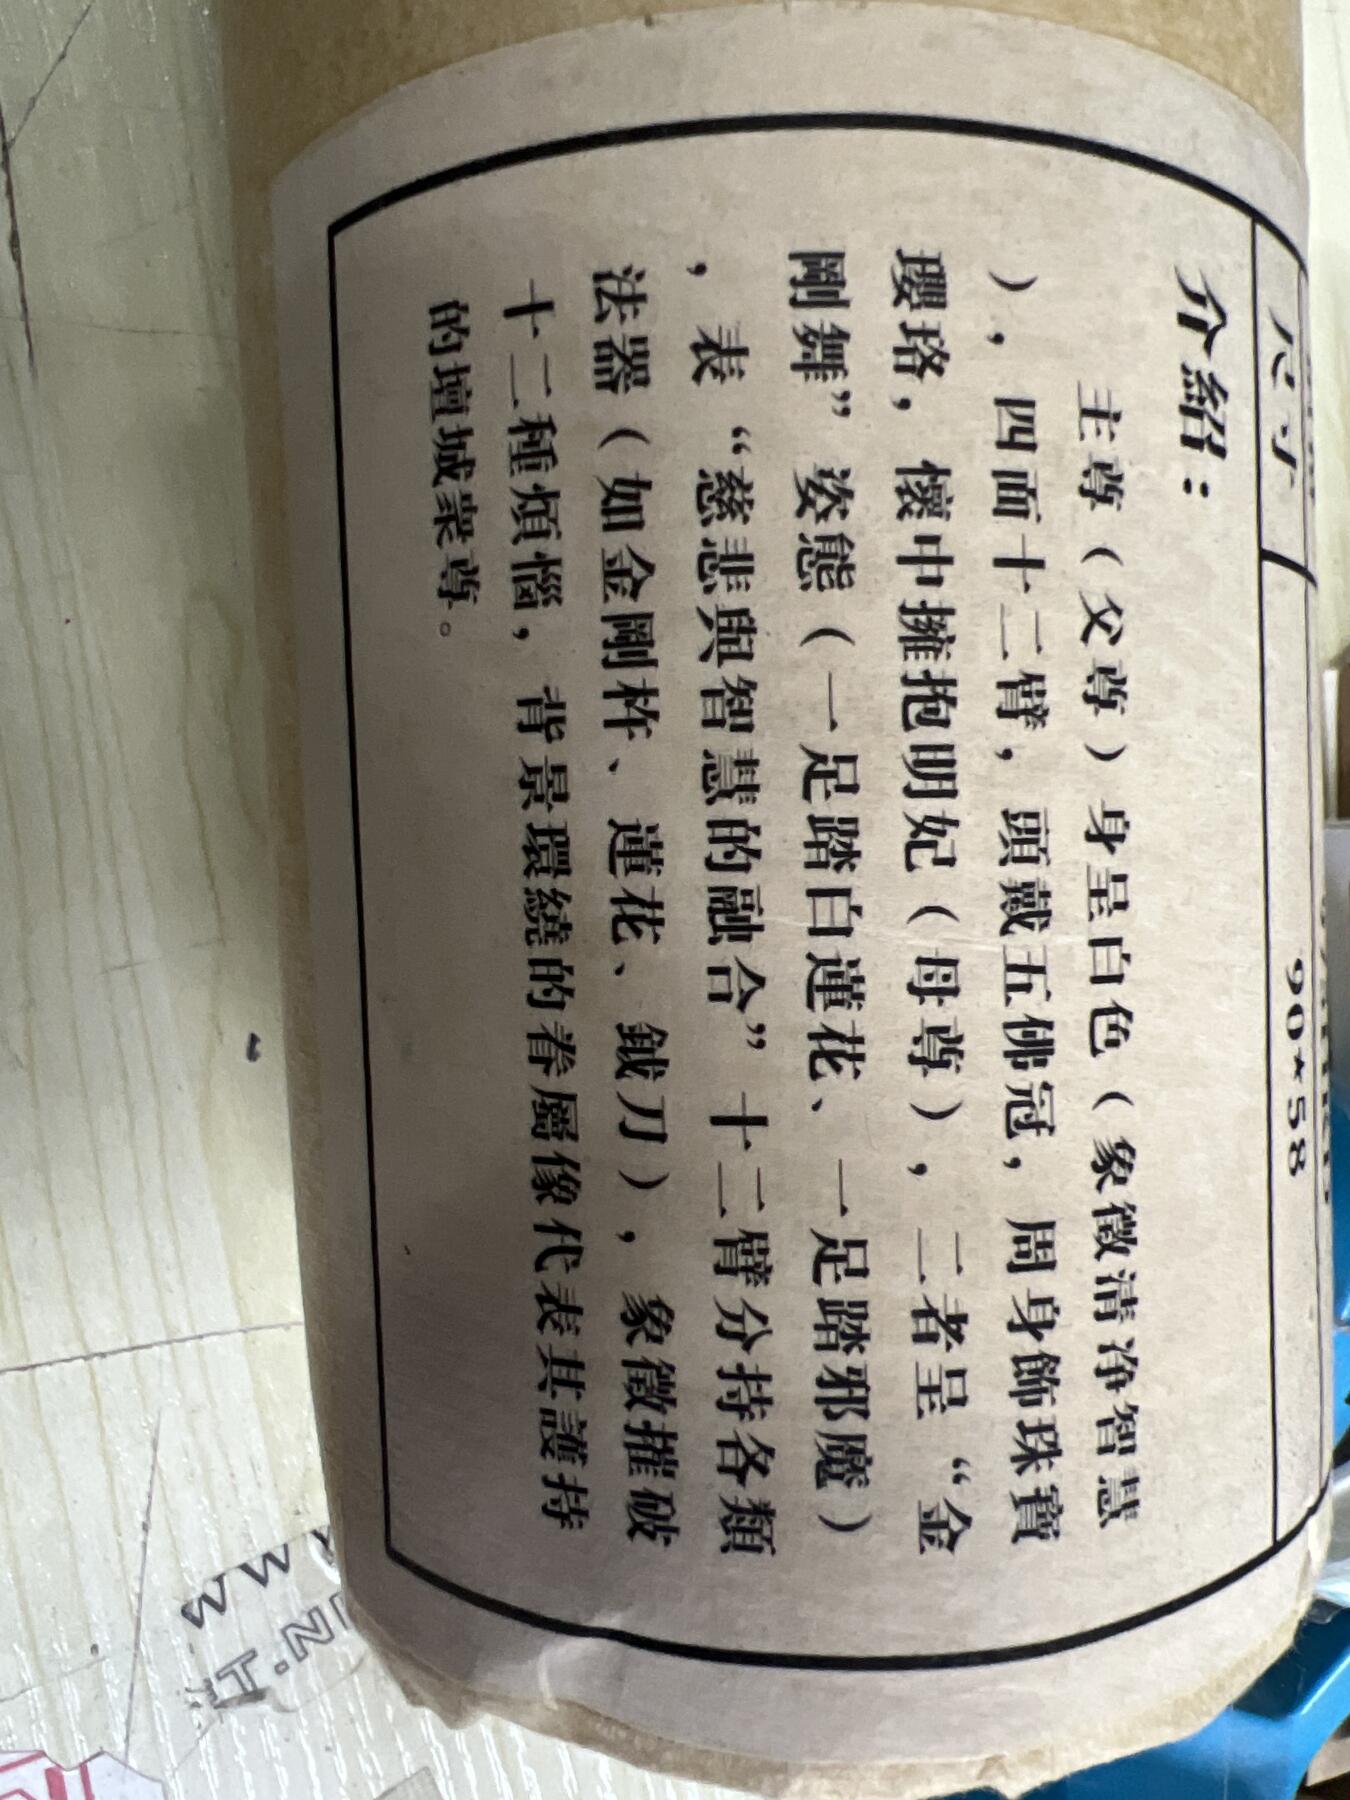 尺寸
90*58
介紹：
主尊（父尊）身呈白色（象徵清净智慧
），四面十二臂，頭戴五佛冠，周身飾珠寶
瓔珞，懷中擁抱明妃（母尊），二者呈“金
剛舞”姿態（一足踏白蓮花、一足踏邪魔）
，表“慈悲與智慧的融合”十二臂分持各類
法器（如金剛杵、蓮花、鉞刀），象徵摧破
十二種煩惱，背景環繞的眷屬像代表其護持
的壇城衆尊。
WW
IT.NI